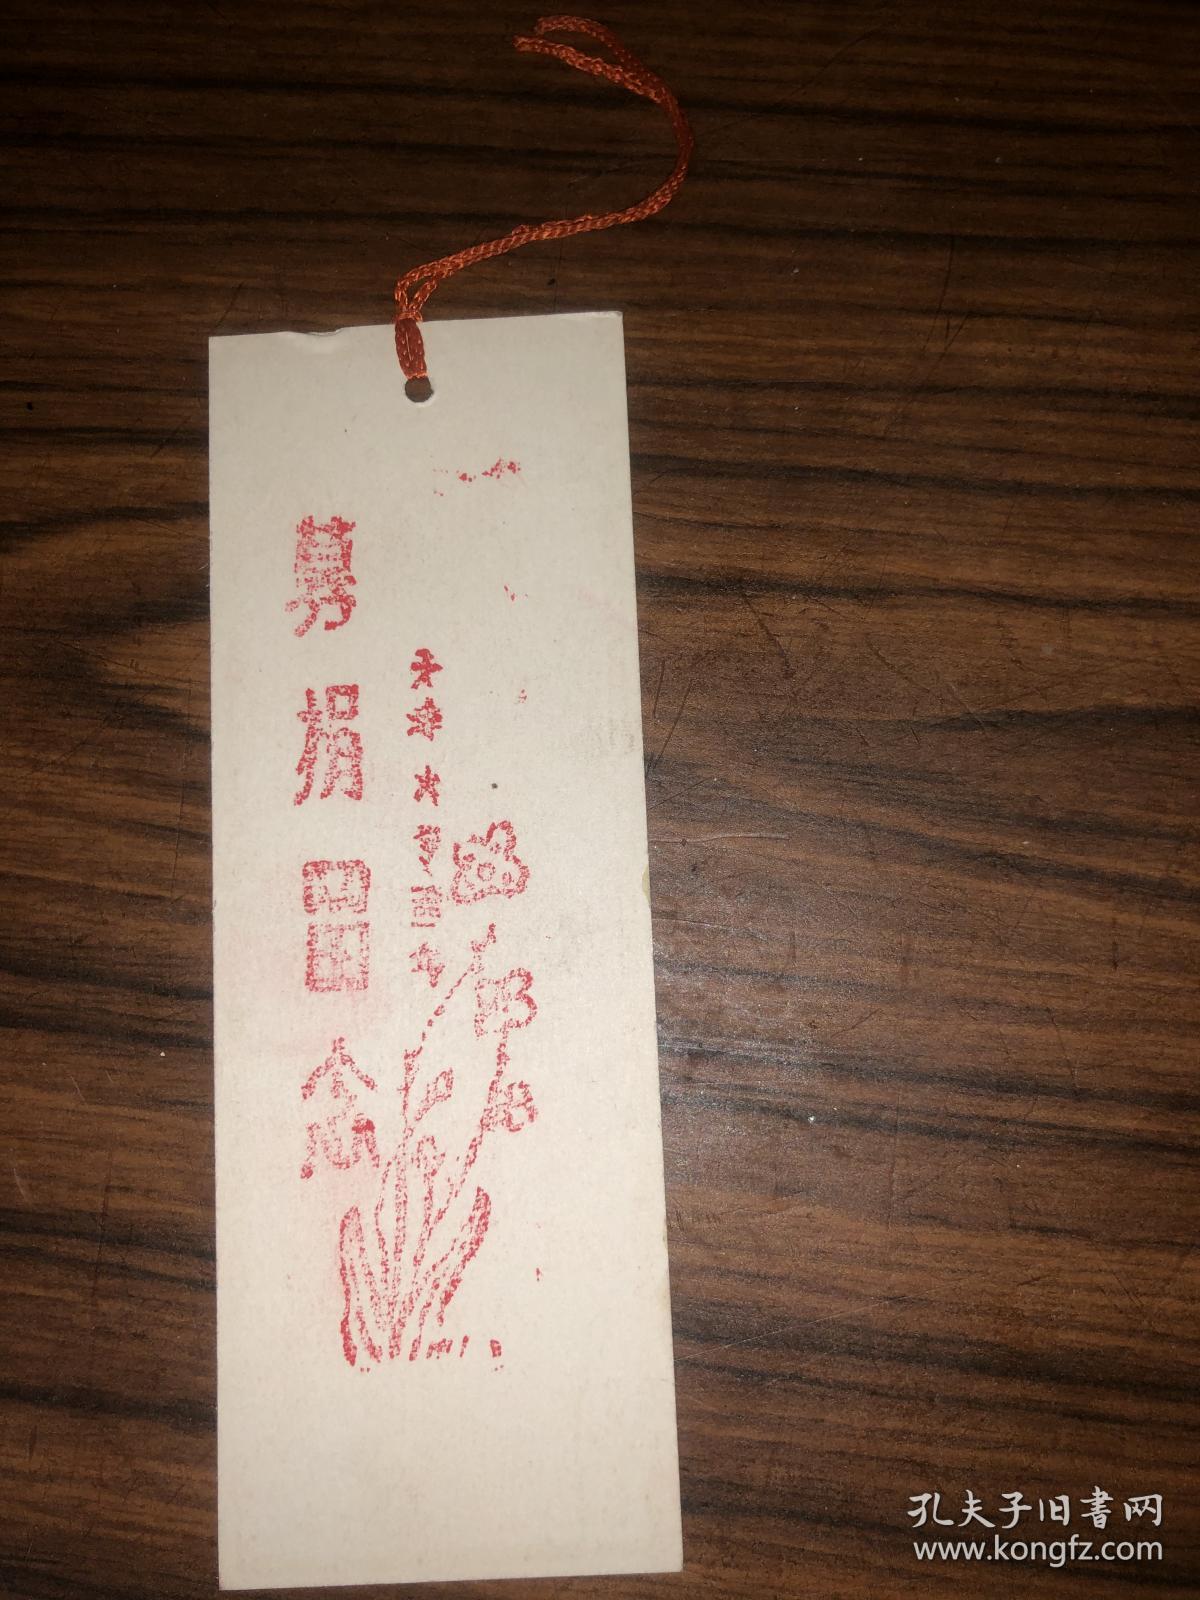 募捐留念
天津大
孔夫子旧書网
www.kongfz.com